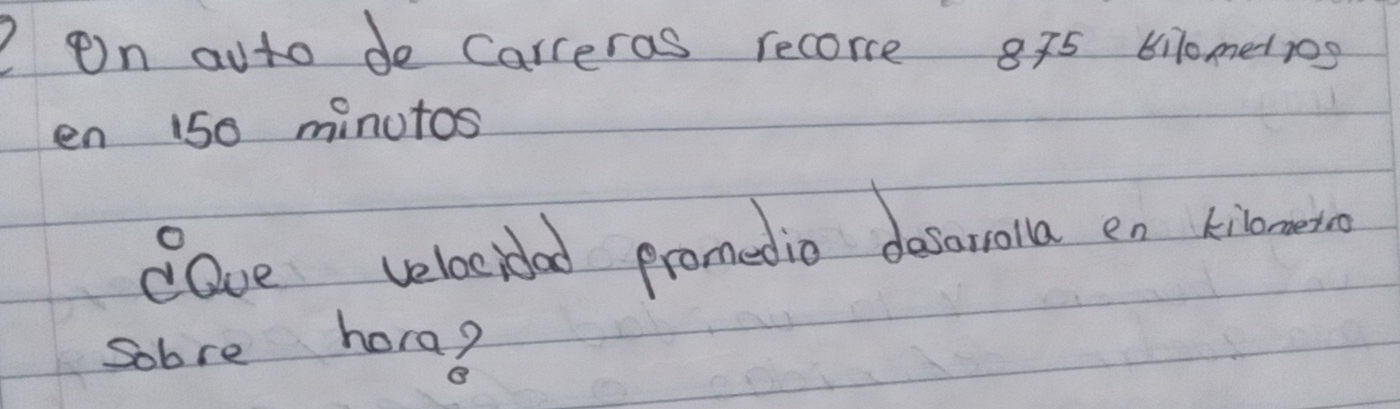 2 Un auto de carreras recorre 875 kilometros
en 150 minutos
¿Que velocidad promedio desarrolla en kilometro
Sobre hora?